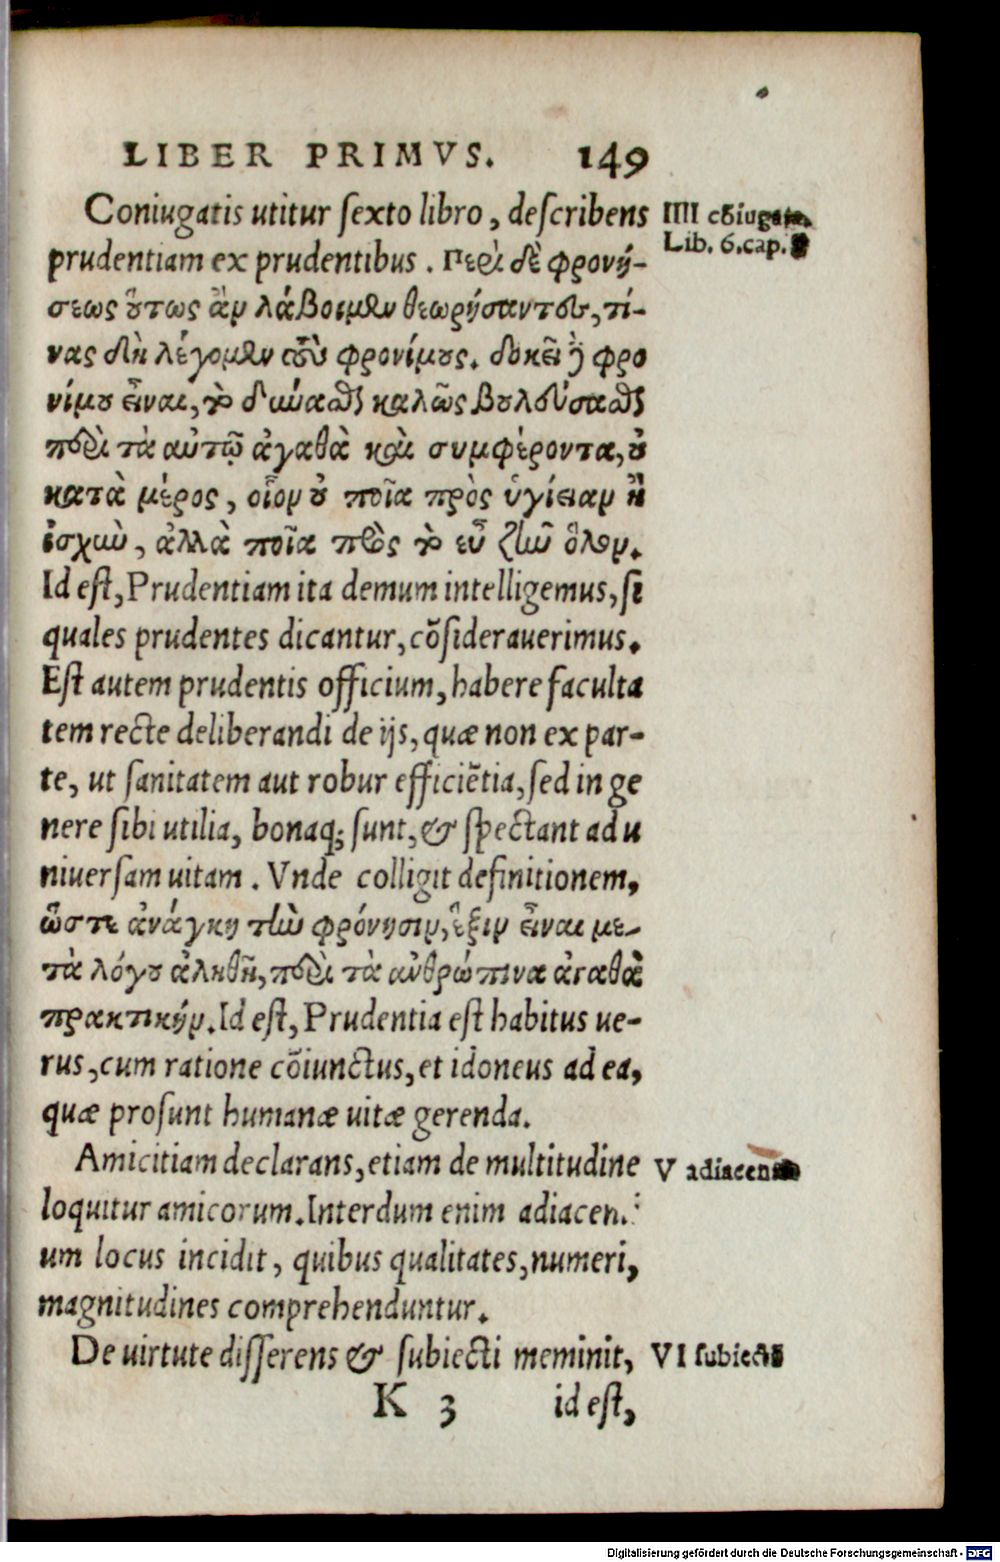 LIBER PRIMVS. 149
Coniugatis utitur sexto libro, describens
IIII cõiugata.
prudentiam ex prudentibus. Περὶ δὲ φρονή-
Lib. 6. cap.
σεως ὅτως ἂν λάβοιμεν θεωρήσαντες, τί-
νας δὴ λέγομεν τοὺς φρονίμους. δοκεῖ δὴ φρο
νίμου εἶναι, τὸ δύνασθαι καλῶς βουλεύσασθαι
περὶ τὰ αὑτῷ ἀγαθὰ καὶ συμφέροντα, οὐ
κατὰ μέρος, οἷον οὐ ποῖα πρὸς ὑγίειαν ἢ
ἰσχὺν, ἀλλὰ ποῖα πρὸς τὸ εὖ ζῆν ὅλον.
Id est, Prudentiam ita demum intelligemus, si
quales prudentes dicantur, cõsiderauerimus.
Est autem prudentis officium, habere faculta
tem recte deliberandi de ijs, quæ non ex par-
te, ut sanitatem aut robur efficiẽtia, sed in ge
nere sibi utilia, bonaq; sunt, & spectant ad u
niuersam uitam. Vnde colligit definitionem,
ὥστε ἀνάγκη τὴν φρόνησιν, ἕξιν εἶναι με-
τὰ λόγου ἀληθῆ, περὶ τὰ ἀνθρώπινα ἀγαθὰ
πρακτικήν. Id est, Prudentia est habitus ue-
rus, cum ratione cõiunctus, et idoneus ad ea,
quæ prosunt humanæ uitæ gerenda.
Amicitiam declarans, etiam de multitudine
V adiacen
loquitur amicorum. Interdum enim adiacen
um locus incidit, quibus qualitates, numeri,
magnitudines comprehenduntur.
De uirtute disserens & subiecti meminit,
VI subiectũ
K 3 id est,
Digitalisierung gefördert durch die Deutsche Forschungsgemeinschaft - DFG